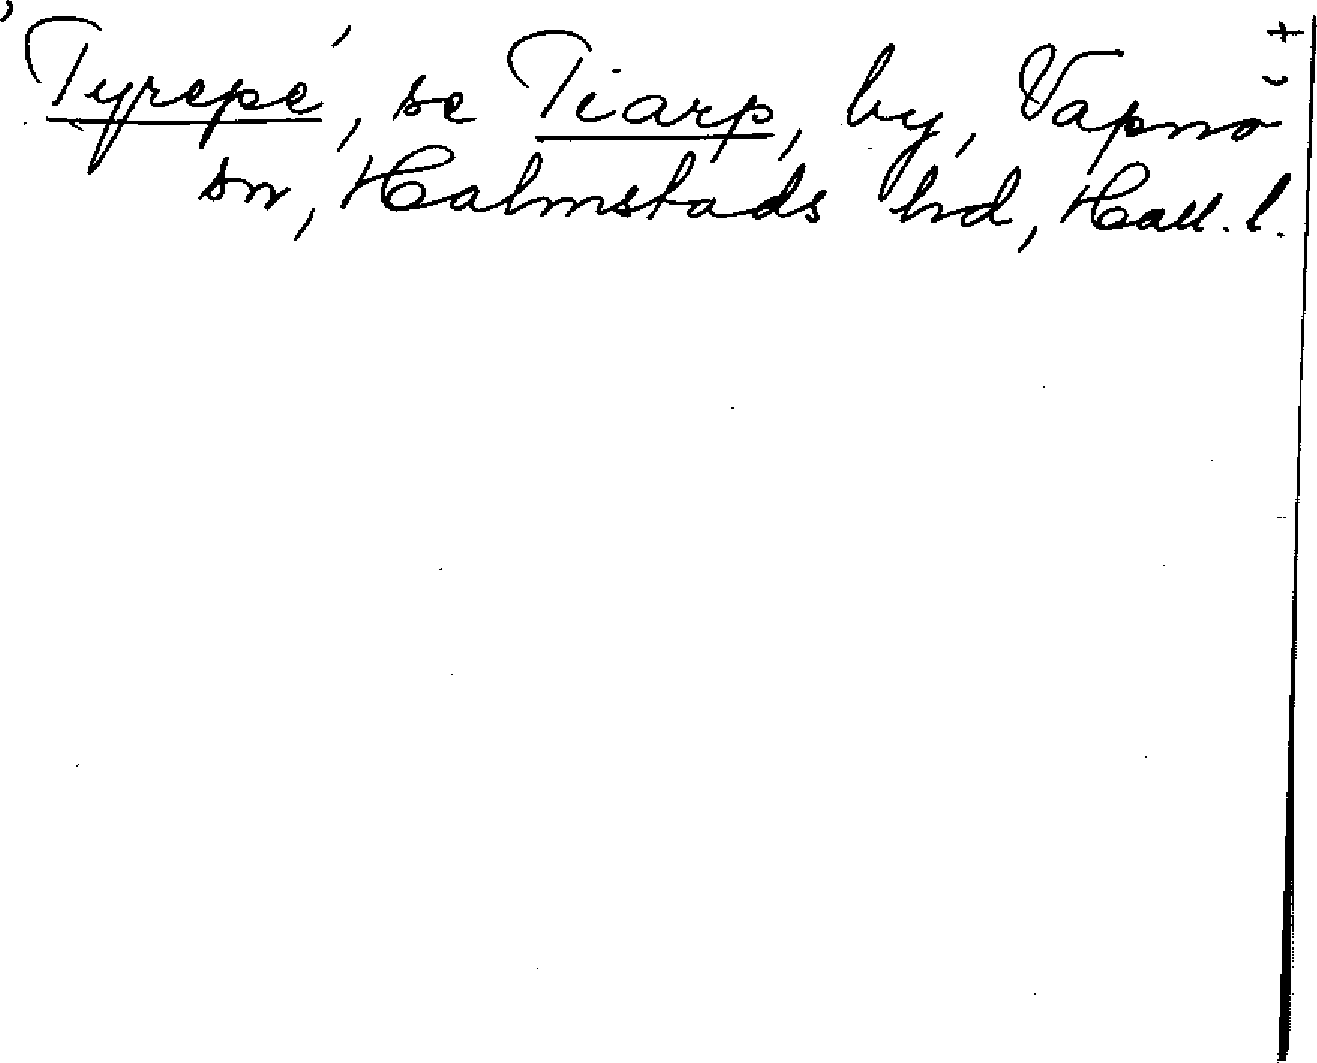 ’Tyrepe’, se Tiarp, by, Vapnö +
sn, Halmstads hd, Hall. l.